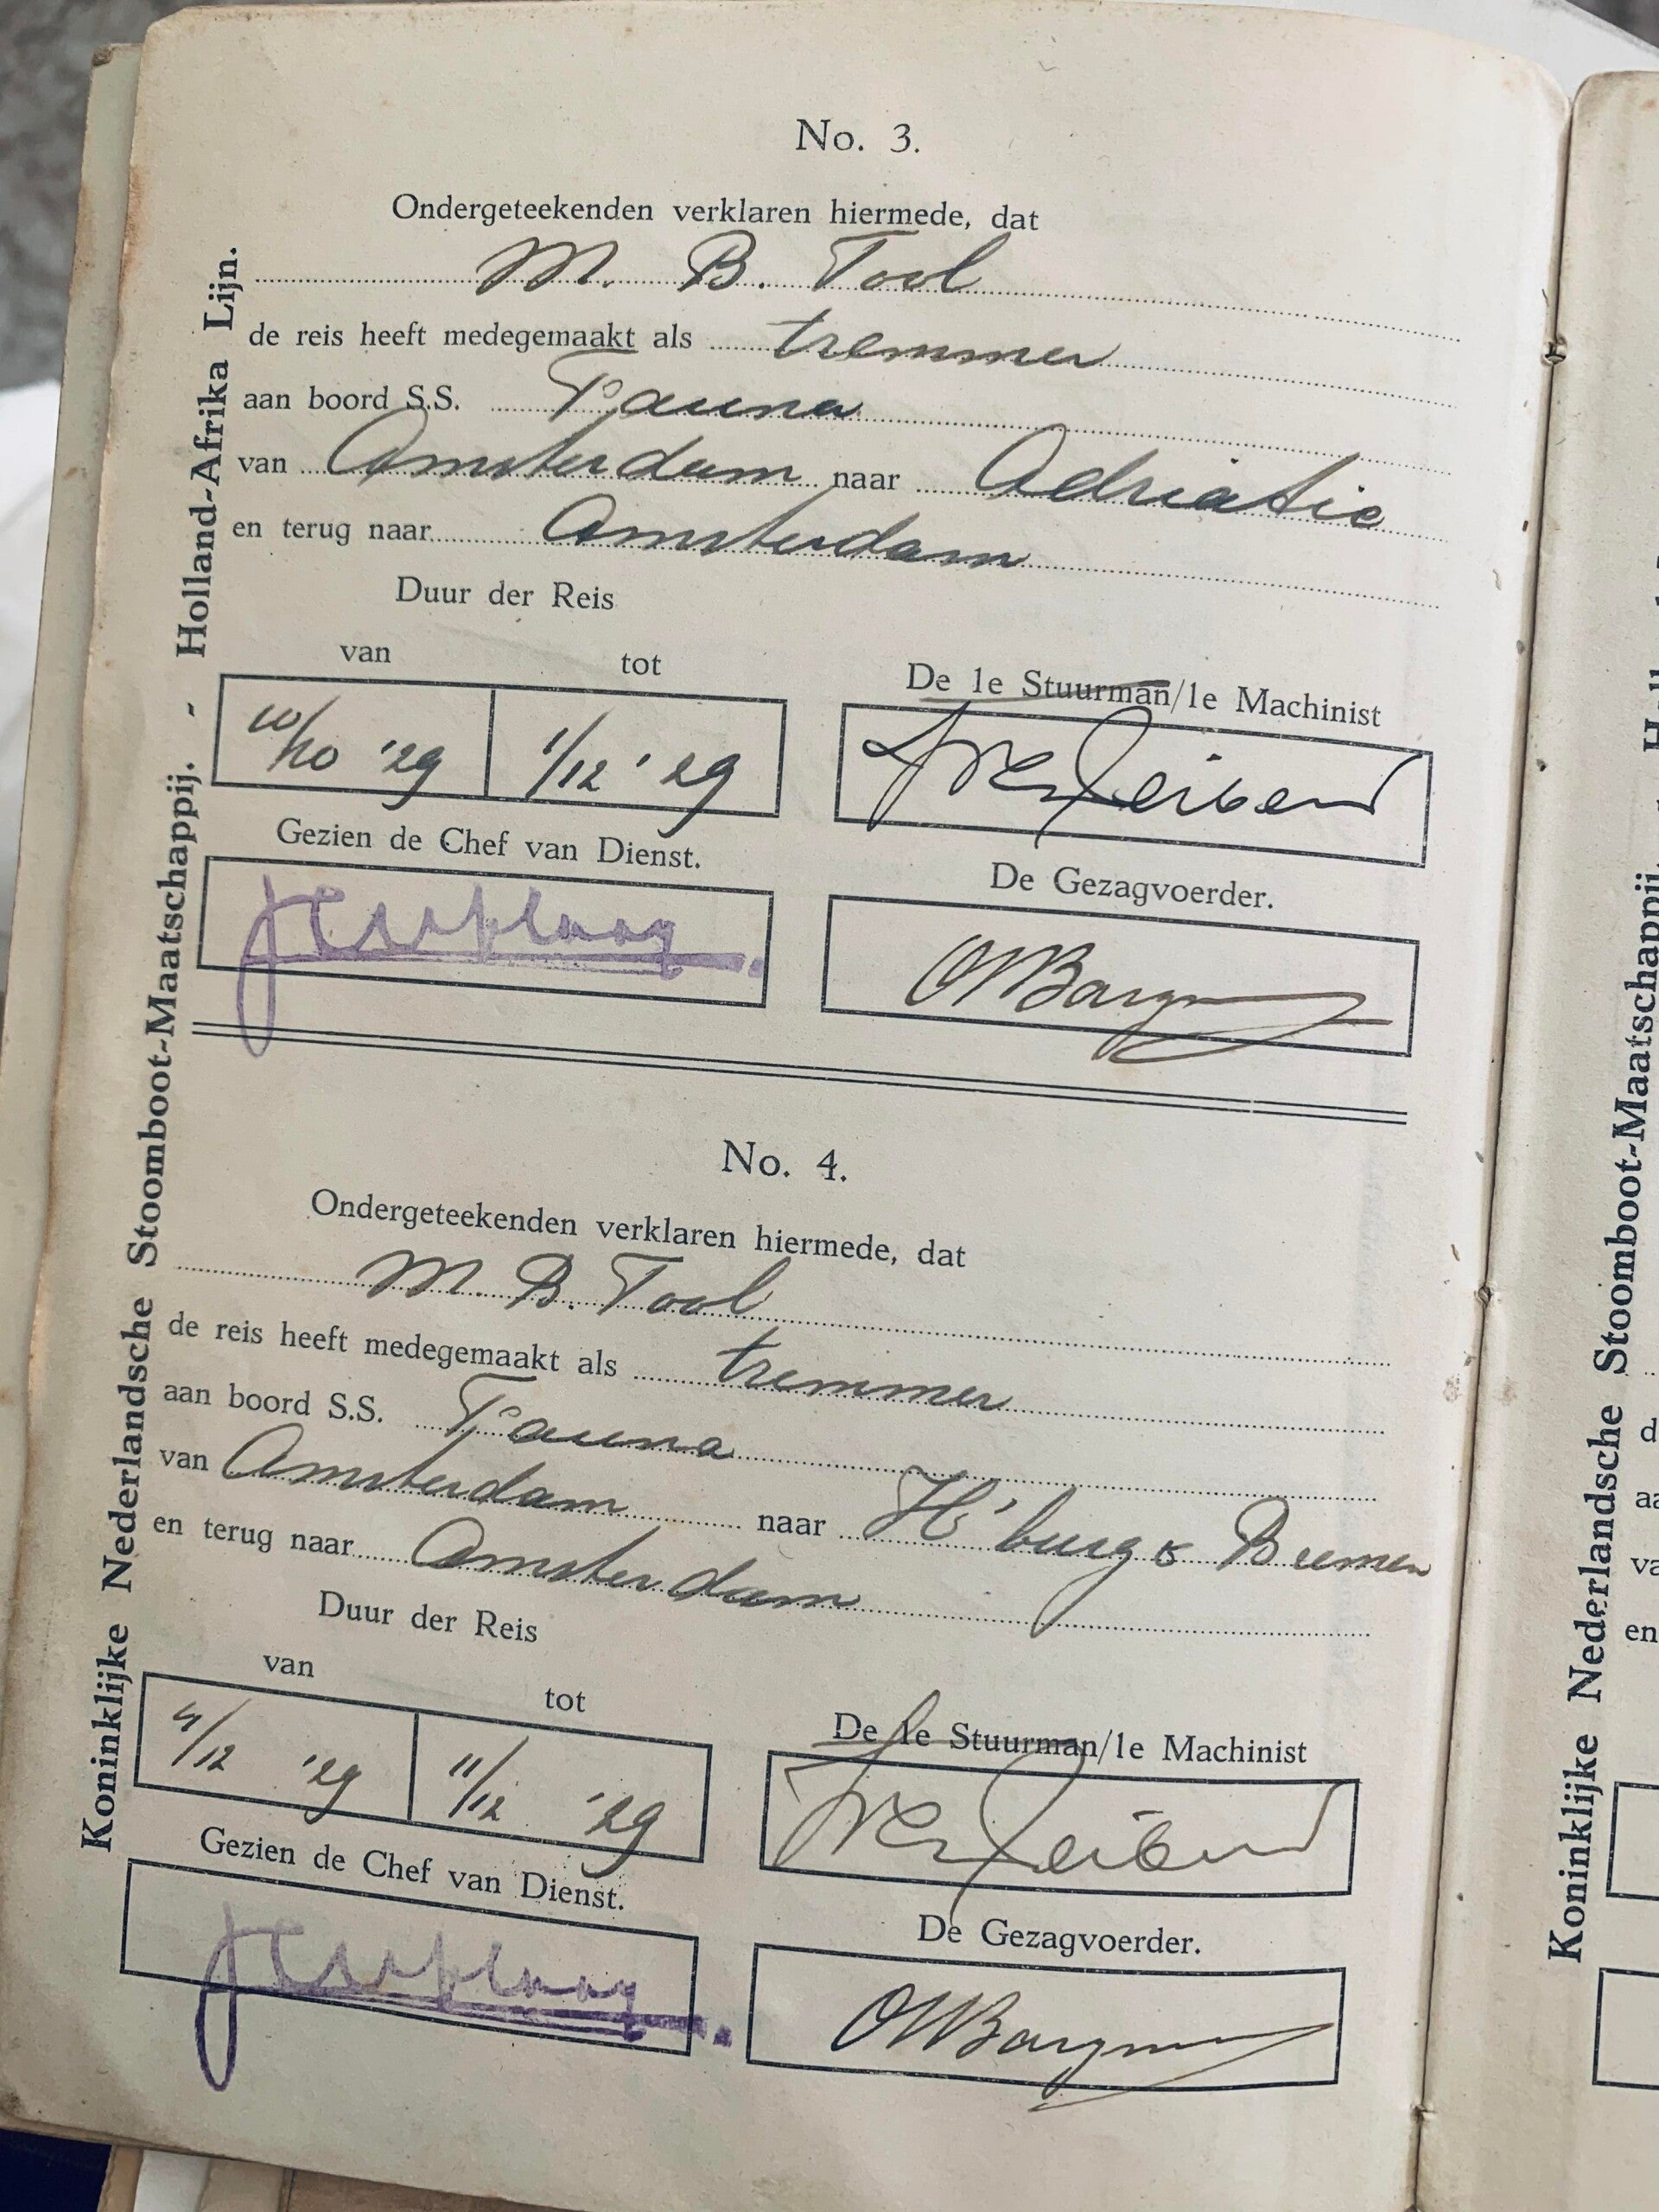 Koninklijke Nederlandsche Stoomboot-Maatschappij. - Holland-Afrika Lijn.
No. 3.
Ondergeteekenden verklaren hiermede, dat
M. B. Tool
de reis heeft medegemaakt als tremmer
aan boord S.S. Fauna
van Amsterdam naar Adriatic
en terug naar Amsterdam
Duur der Reis
van tot
De 1e Stuurman/1e Machinist
10/10 '29 1/12 '29
Gezien de Chef van Dienst.
De Gezagvoerder.
No. 4.
Ondergeteekenden verklaren hiermede, dat
M. B. Tool
de reis heeft medegemaakt als tremmer
aan boord S.S. Fauna
van Amsterdam naar H'burg & Bremen
en terug naar Amsterdam
Duur der Reis
van tot
De 1e Stuurman/1e Machinist
4/12 '29 11/12 '29
Gezien de Chef van Dienst.
De Gezagvoerder.
Koninklijke Nederlandsche Stoomboot-Maatschappij.